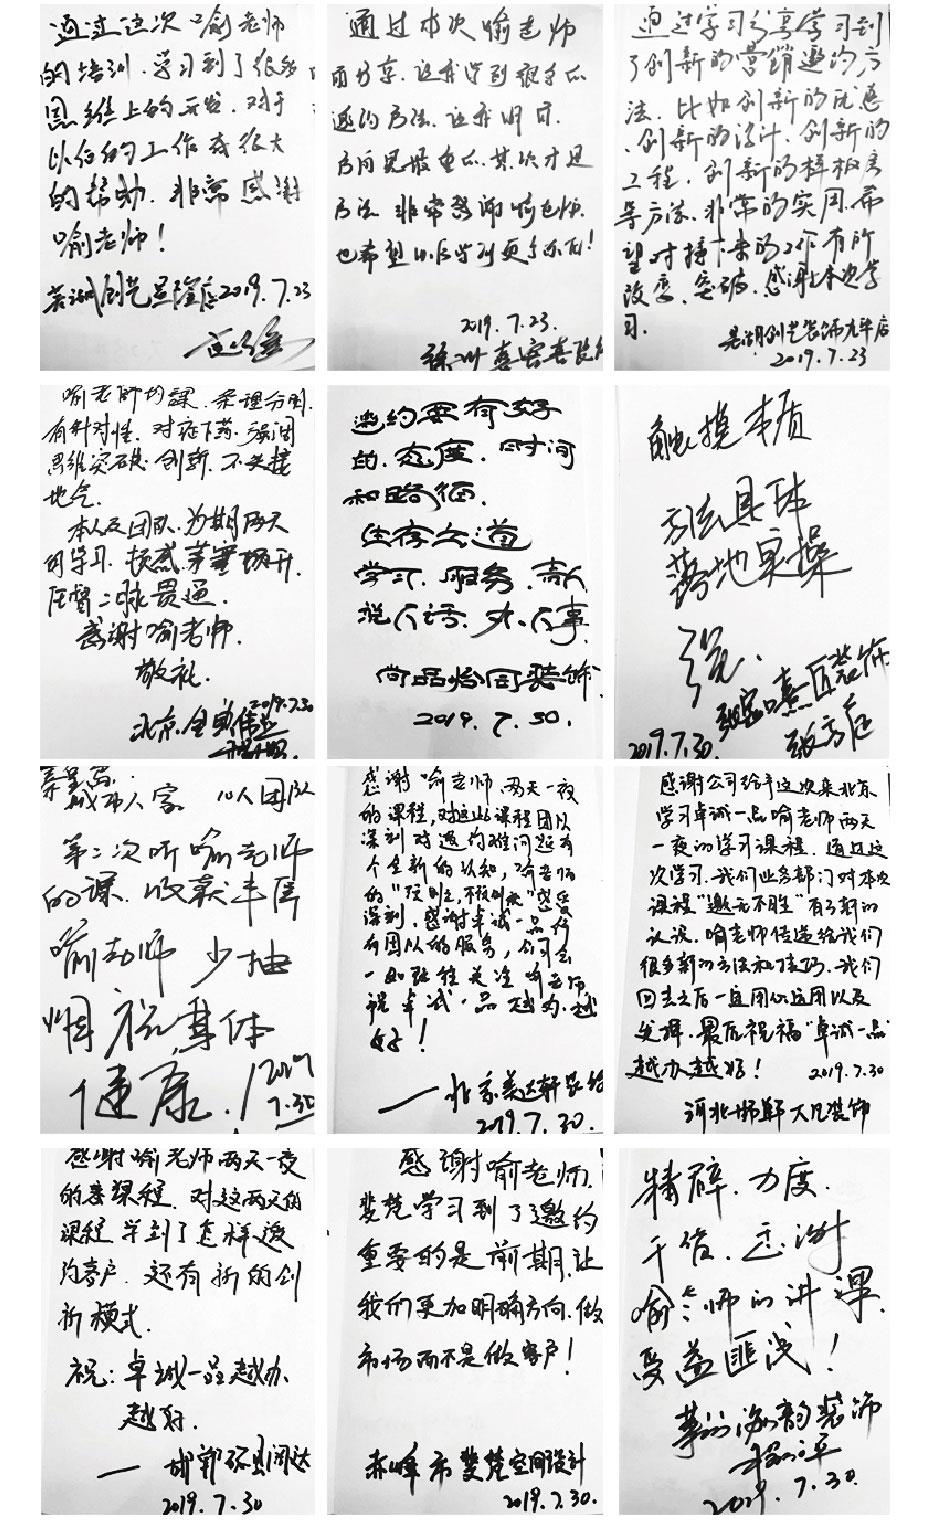 通过这次喻老师
的培训.学习到了很多
思维上的开发.对于
以后的工作有很大
的帮助.非常感谢
喻老师!
2019.7.23
通过本次喻老师
而分享.让我学到很多的
邀约方法.让我明白.
方向是最重要的.其次才是
方法.非常感谢喻老师.
也希望以后学到更多东西!
2019.7.23.
通过学习分享学习到
了创新的营销邀约方
法.比如创新的优惠
.创新的设计.创新的
工程.创新的样板房
等方法.非常的实用.希
望对接下来的工作有所
改变、突破.感谢本次学
习.
2019.7.23
喻老师的课.条理分明.
有针对性.对症下药.强调
思维突破.创新.不失接
地气.
本人及团队.为期两天
的学习.顿感茅塞顿开.
任督二脉贯通.
感谢喻老师.
敬礼.
2019.7.30
邀约要有好
的.态度.时间
和路径.
生存之道
学习.服务.高人
说人话.办人事.
尚品怡同装饰
2019.7.30.
触摸本质
方法具体
落地实操
2019.7.30.
城市人家 10人团队
第二次听喻老师
的课.收获丰厚
喻老师 少抽
烟 祝身体
健康.
2019
7.30
感谢喻老师两天一夜
的课程,对这此课程团队
深刻对邀约难问题有
个全新的认知,喻老师
的"预则立,不预则废"感受
深刻.感谢卓诚一品所
有团队的服务,公司会
一如既往关注喻老师
祝卓诚一品越办越
好!
——北京美达轩装饰
2019.7.30.
感谢公司给予这次来北京
学习卓诚一品喻老师两天
一夜的学习课程.通过这
次学习.我们业务部门对本次
课程"邀无不胜"有了新的
认识.喻老师传递给我们
很多新的方法和技巧.我们
回去之后一定用心运用以及
发挥.最后祝福"卓诚一品"
越办越好!
2019.7.30
河北邯郸大凡装饰
感谢喻老师两天一夜
的亲课程.对这两天的
课程学到了怎样邀
约客户.还有新的创
新模式.
祝:卓诚一品越办.
越好.
2019.7.30
感谢喻老师.
斐梵学习到了邀约
重要的是前期.让
我们更加明确方向.做
市场而不是做客户!
赤峰市斐梵空间设计
2019.7.30.
精辟.力度.
干货.感谢
喻老师的讲课.
受益匪浅!
2019.7.30.